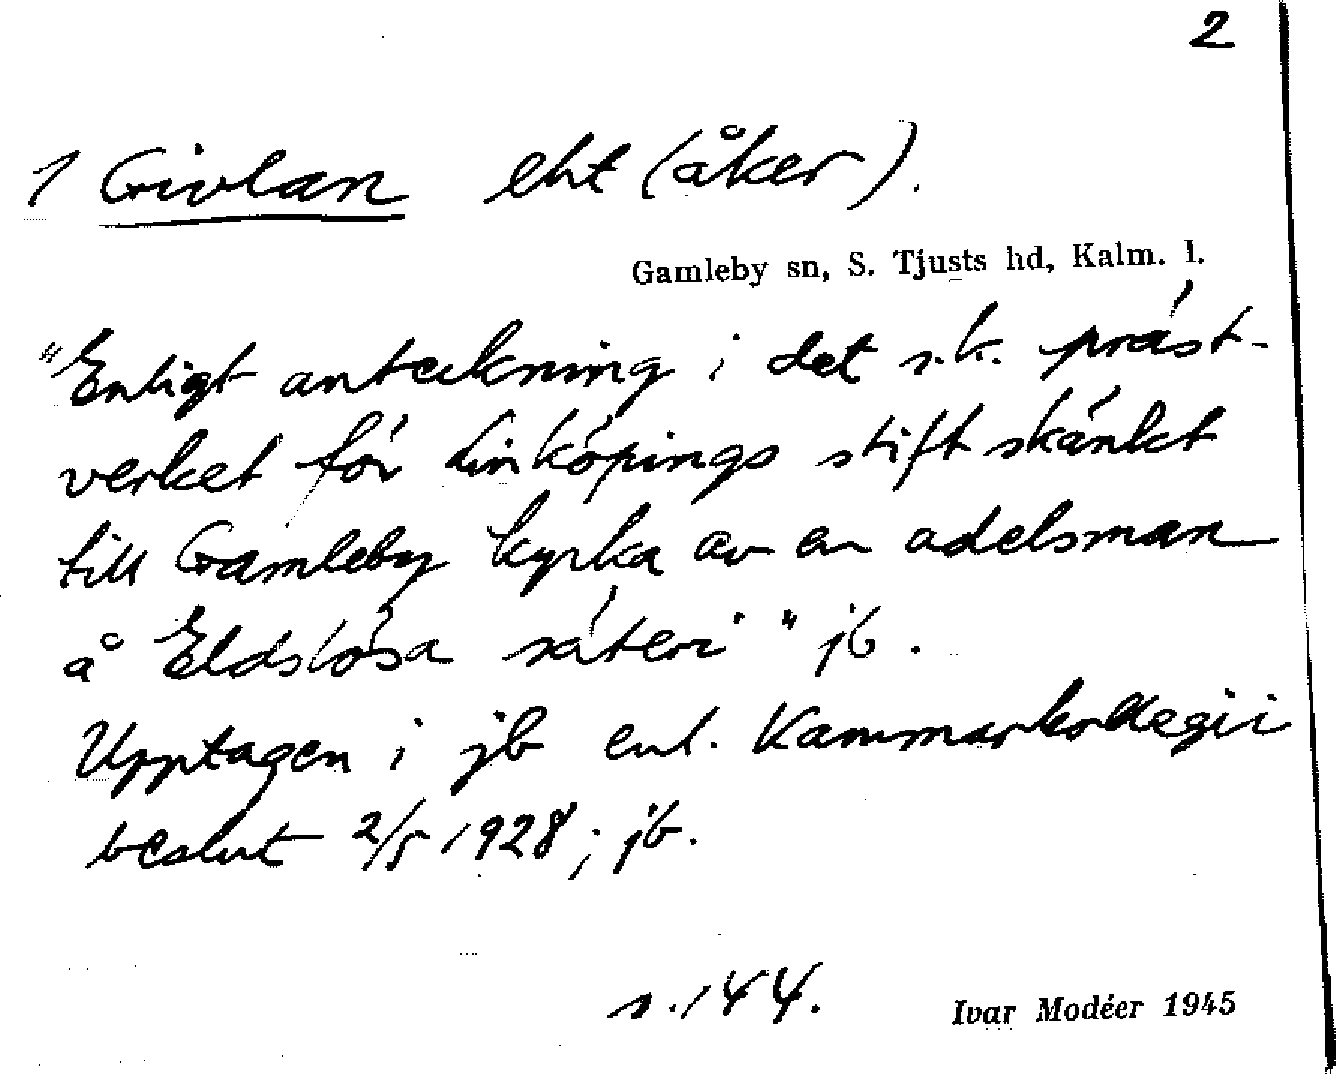 2
1 Givlan eht (åker).
Gamleby sn, S. Tjusts hd, Kalm. l.
"Enligt anteckning i det s.k. präst-
verket för Linköpings stift skänkt
till Gamleby kyrka av en adelsman
å Eldslösa säteri" jb.
Upptagen i jb enl. Kammarkollegii
beslut 2/5 1928; jb.
s. 144.
Ivar Modéer 1945